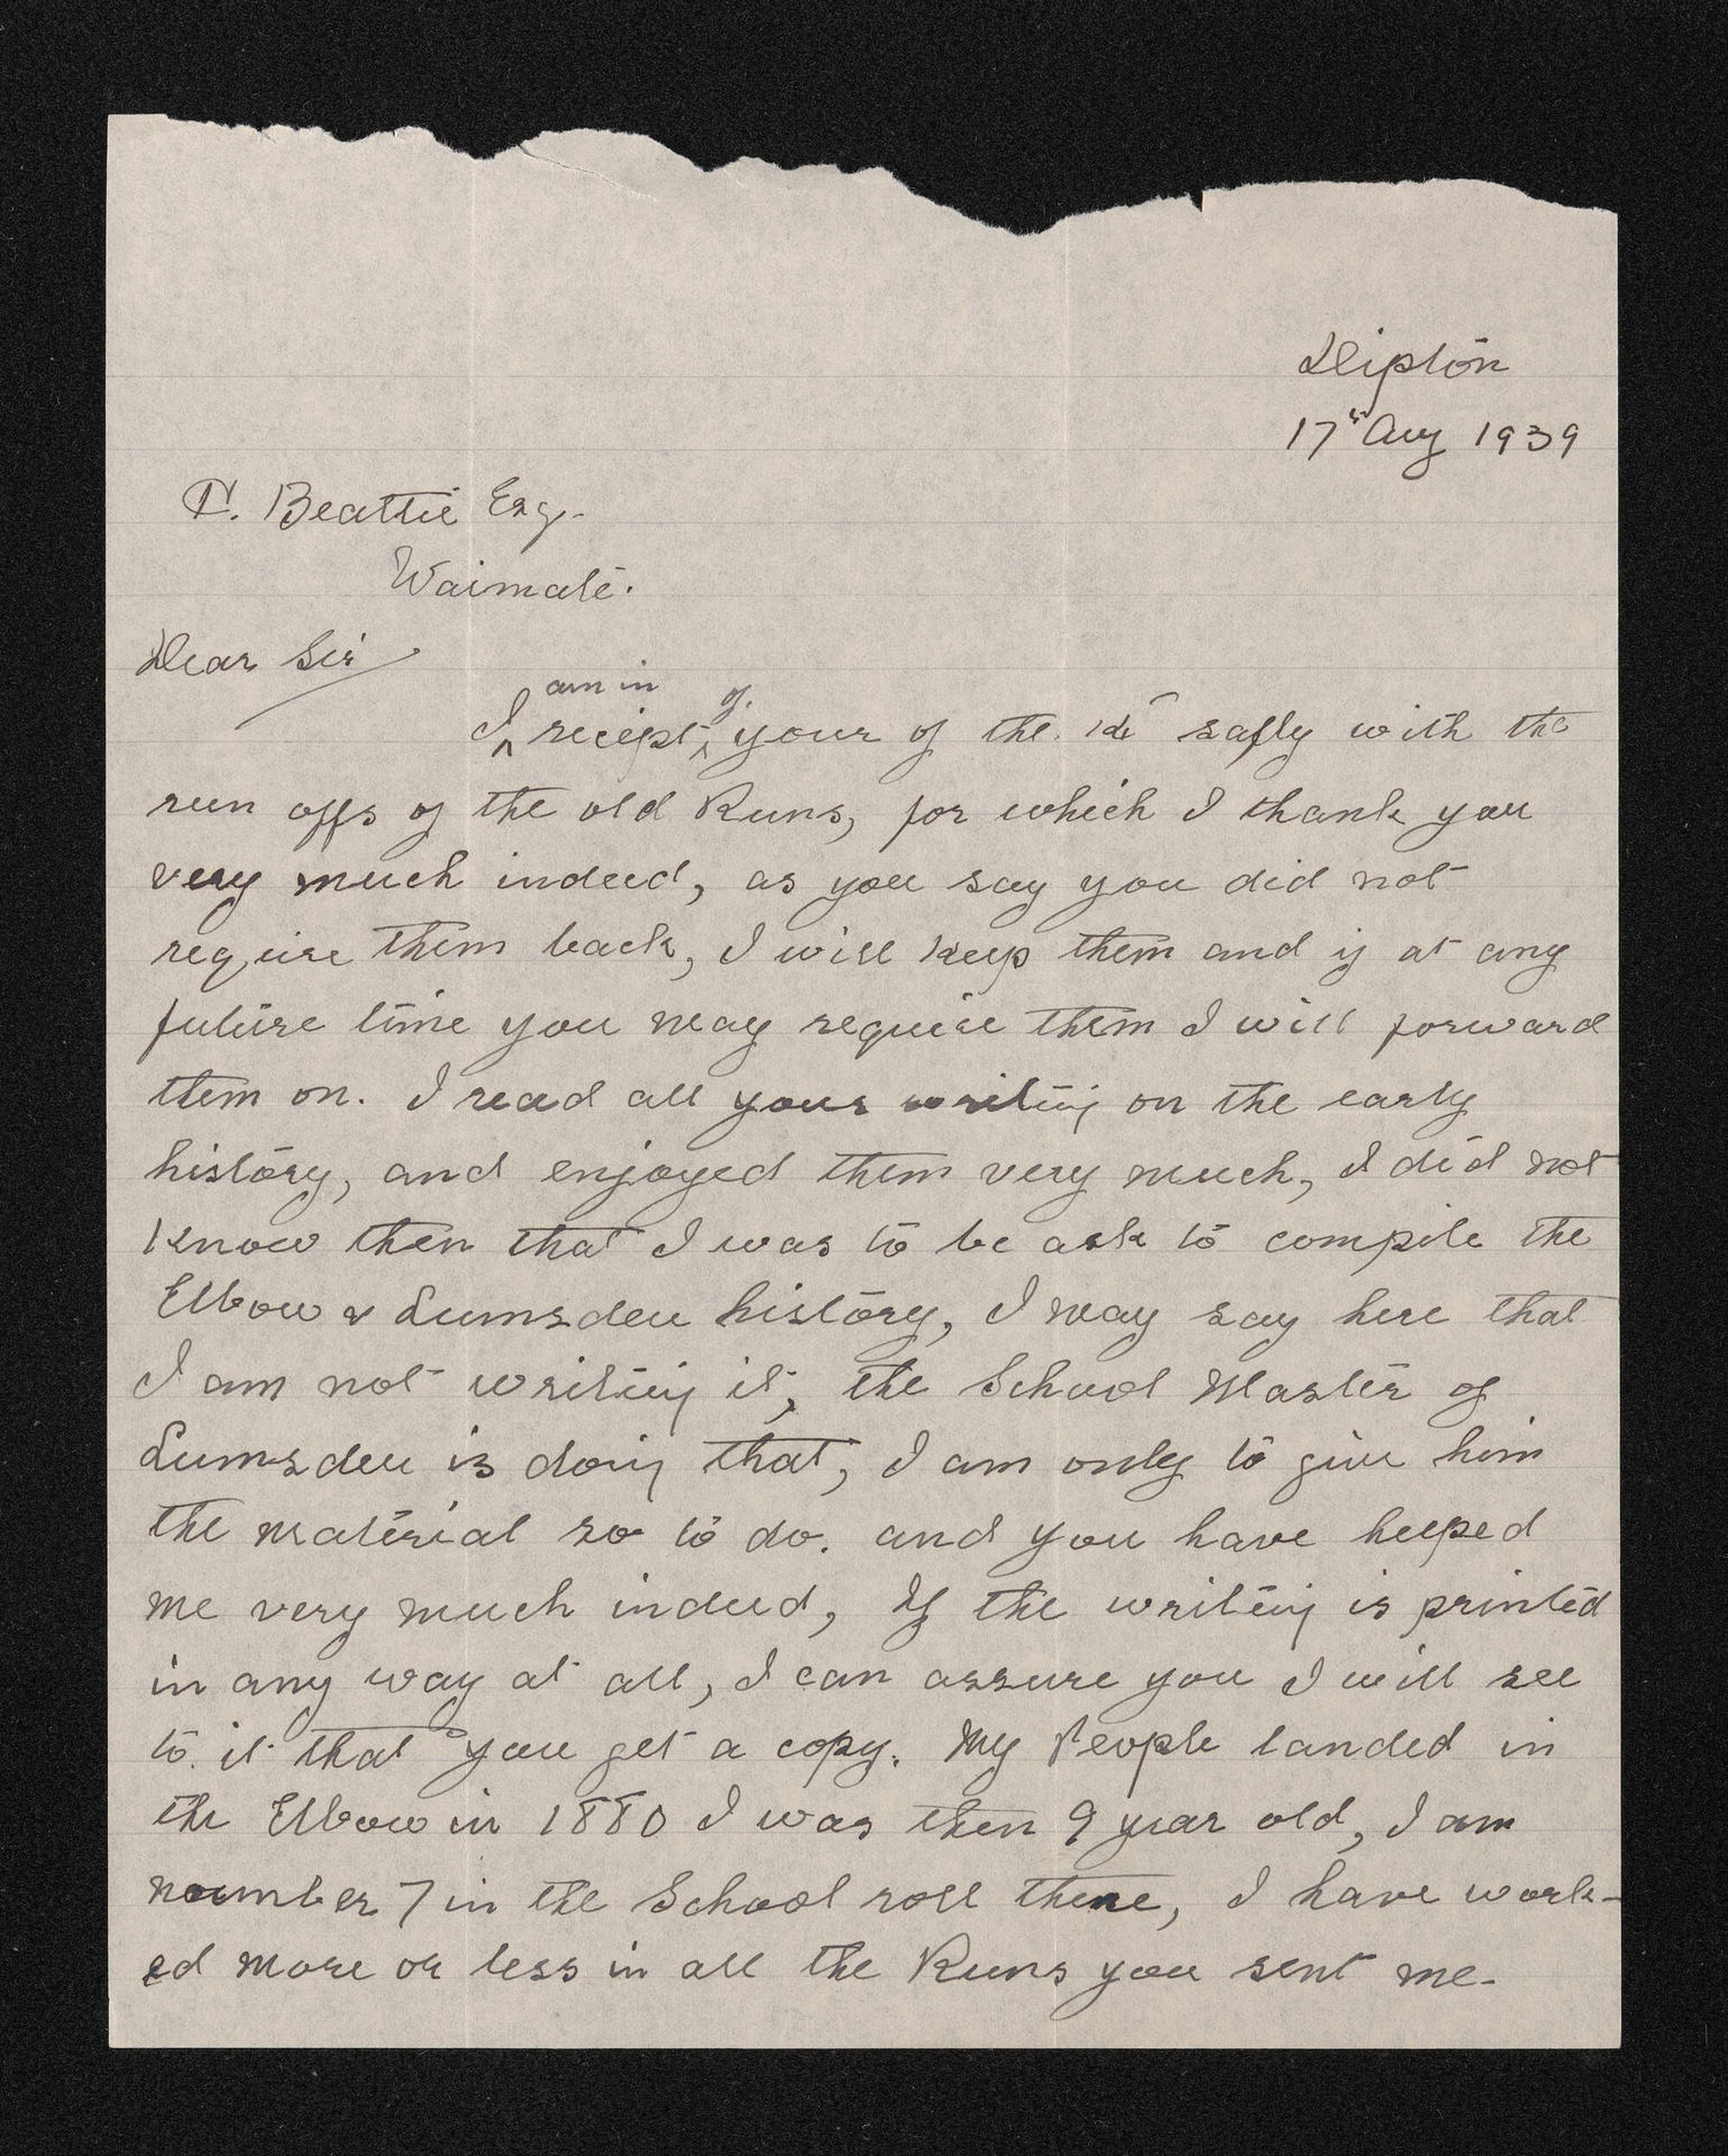 Dipton
17th Aug 1939
Beattie Esq.
Waimate.
Dear Sir
I am in reciept of your of the safly with the
run offs of the old Runs, for which I thank you
very much indeed, as you say you did not
require them back, I will keep them and if at any
future time you may require them I will forward
them on. I read all your writing on the early
history, and enjoyed them very much, I did not
know then that I was to be ask to compile the
Elbow & Lumsden history, I may say here that
I am not writing it, the School Master of
Lumsden is doing that, I am only to give him
the material so to do. and you have helped
me very much indeed, If the writing is printed
in any way at all, I can assure you I will see
to it that you get a copy. My People landed in
the Elbow in 1880 I was then 9 year old, I am
number 7 in the School roll there, I have work-
ed more or less in all the Runs you sent me-